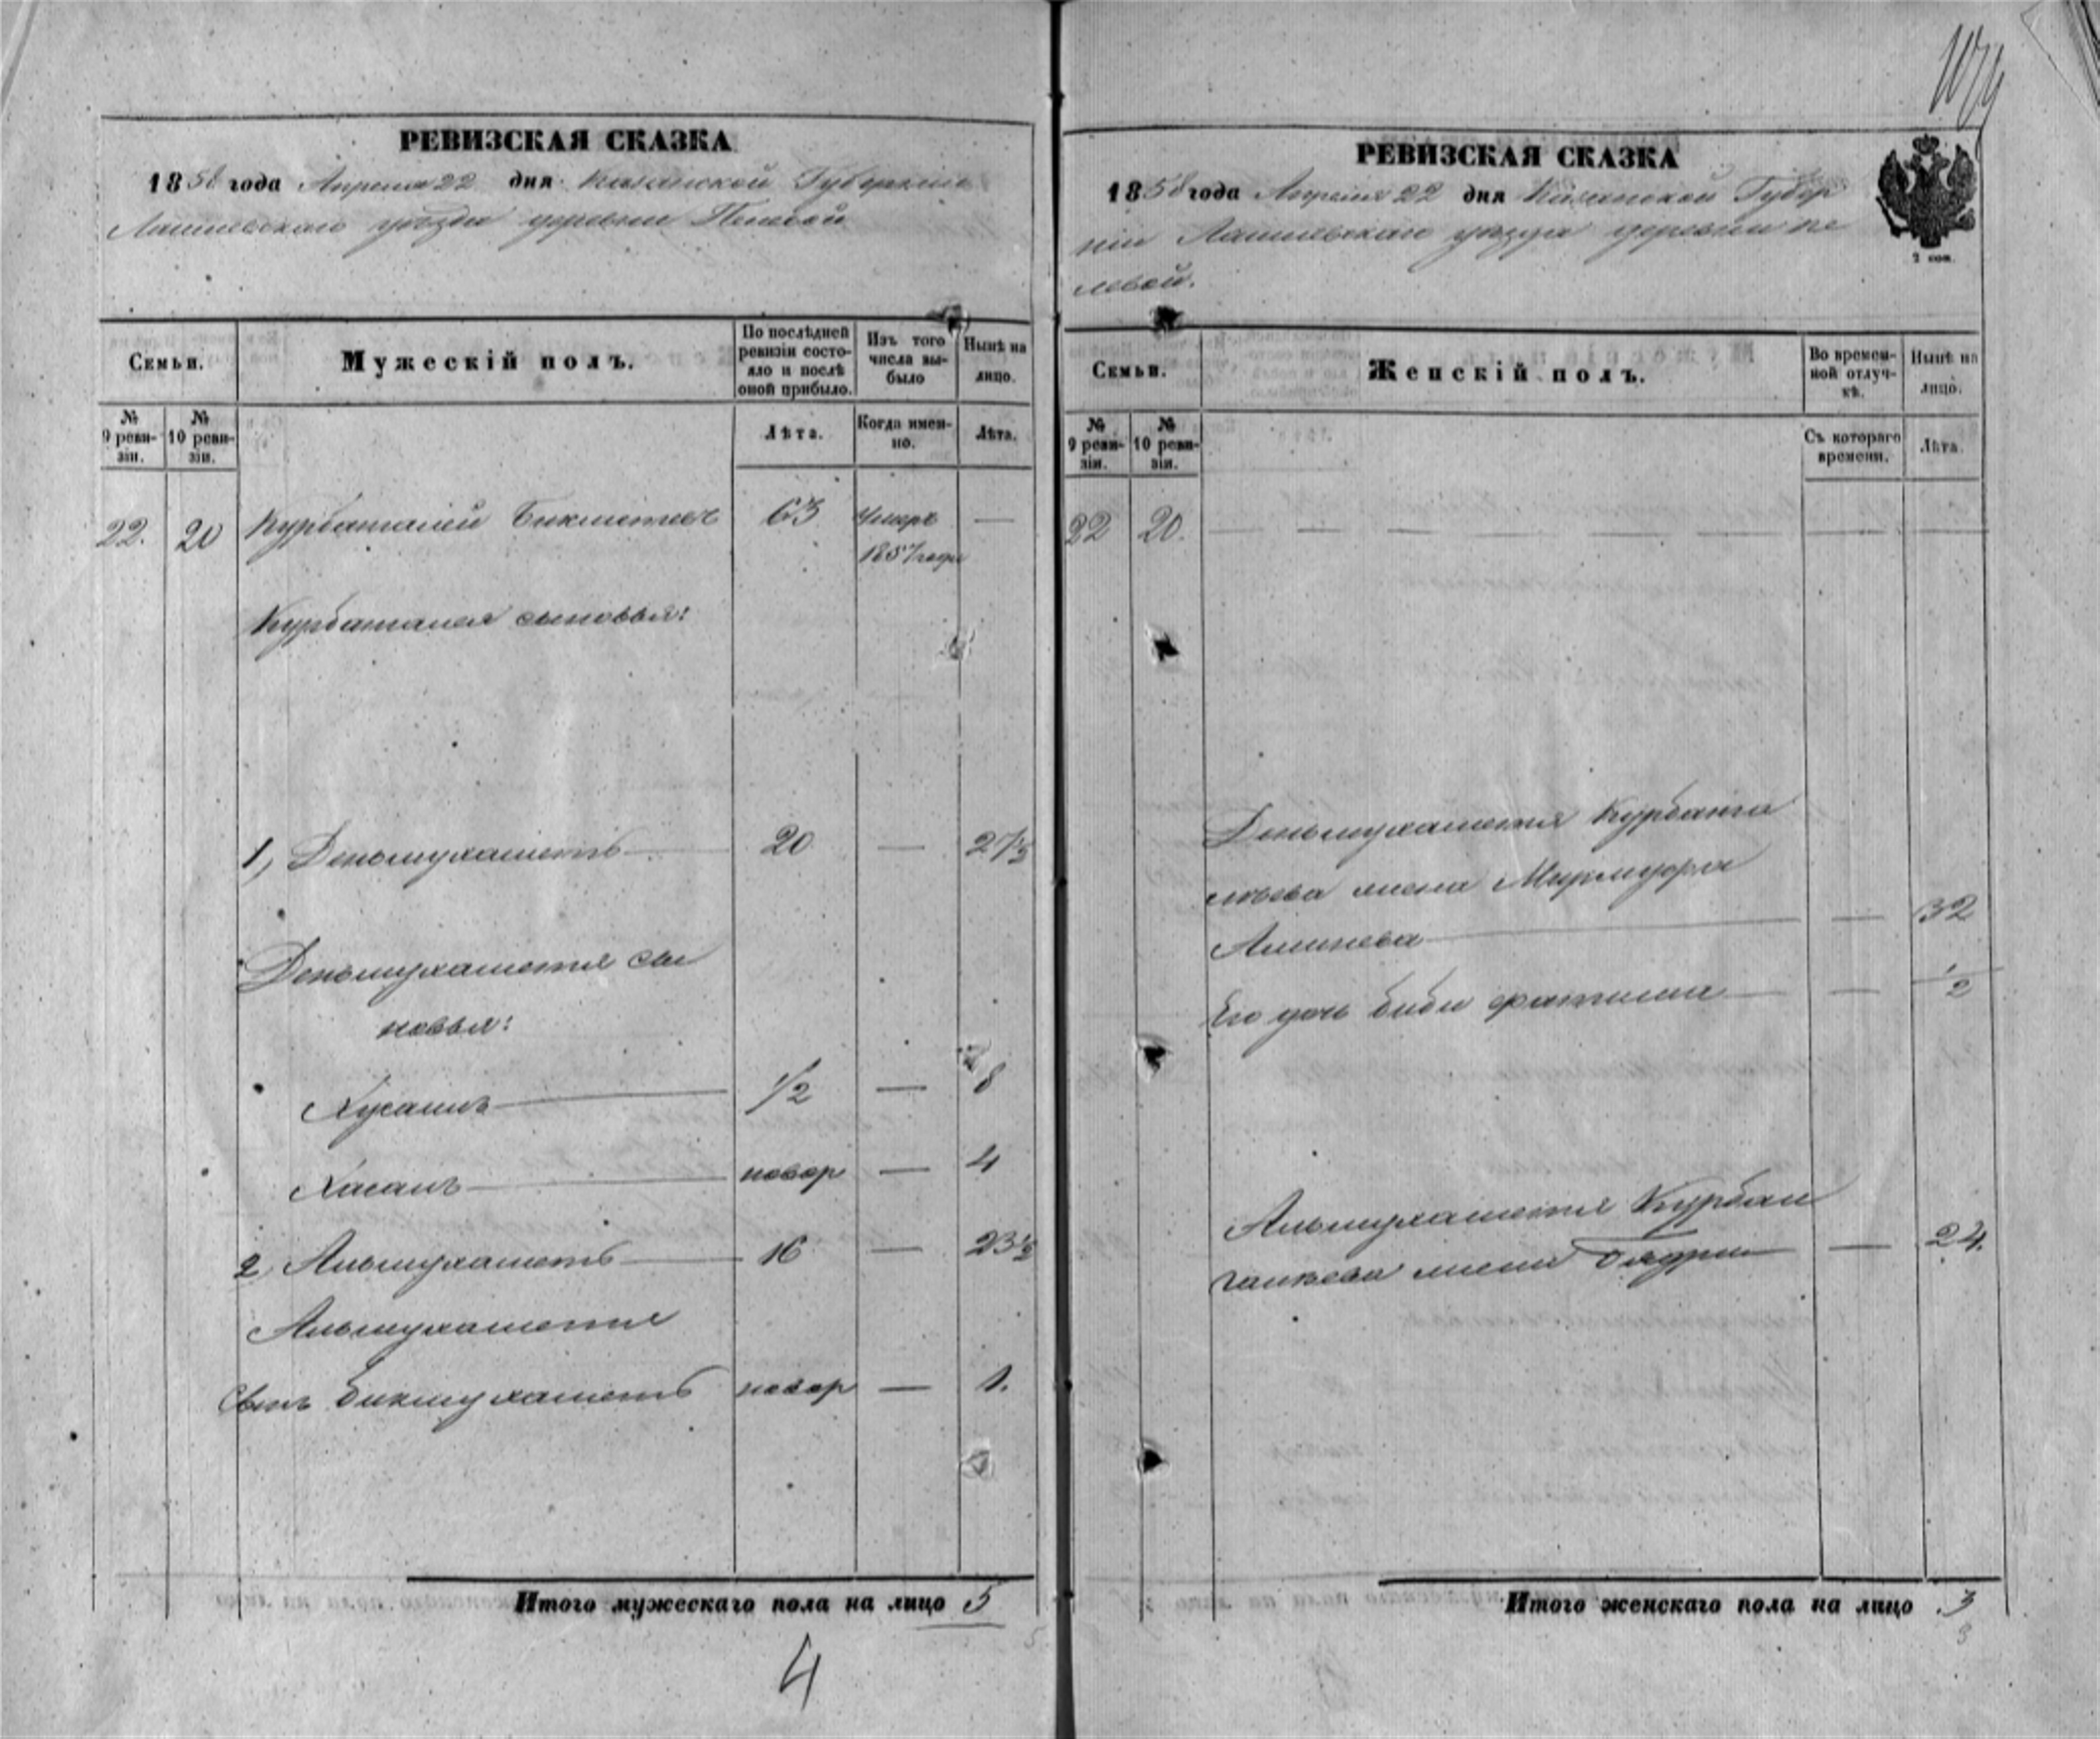 1079
РЕВИЗСКАЯ СКАЗКА
1858 года Апреля 22 дня Казанской Губернии
Лаишевскаго уѣзда деревни Пелевой
Семьи.
Мужескій полъ.
По послѣдней ревизіи состояло и послѣ оной прибыло.
Изъ того числа выбыло
Нынѣ на лицо.
№ 9 ревизіи.
№ 10 ревизіи.
Лѣта.
Когда именно.
Лѣта.
22. 20 Курбангалей Бикметевъ 63 Умеръ —
1857 года
Курбангалея сыновья:
1, Деньмухаметъ — 20 — 27½
Деньмухаметя сы
новья:
Хусаинъ — 1/2 — 8
Хасанъ — новор — 4
2, Альмухаметъ — 16 — 23½
Альмухаметя
Сынъ Бикмухаметъ новор — 1.
Итого мужескаго пола на лицо 5
4
РЕВИЗСКАЯ СКАЗКА
1858 года Апреля 22 дня Казанской Губер
ніи Лаишевскаго уѣзда деревни Пе
левой.
2 коп.
Семьи.
Женскій полъ.
Во временной отлучкѣ.
Нынѣ на лицо.
№ 9 ревизіи.
№ 10 ревизіи.
Съ котораго времени.
Лѣта.
22 20.
Деньмухаметя Курбанга
леева жена
— — 32
Его дочь Биби Фатима — — 1/2
Альмухаметя Курбан
галеева жена Бядри — 24.
Итого женскаго пола на лицо 3
3